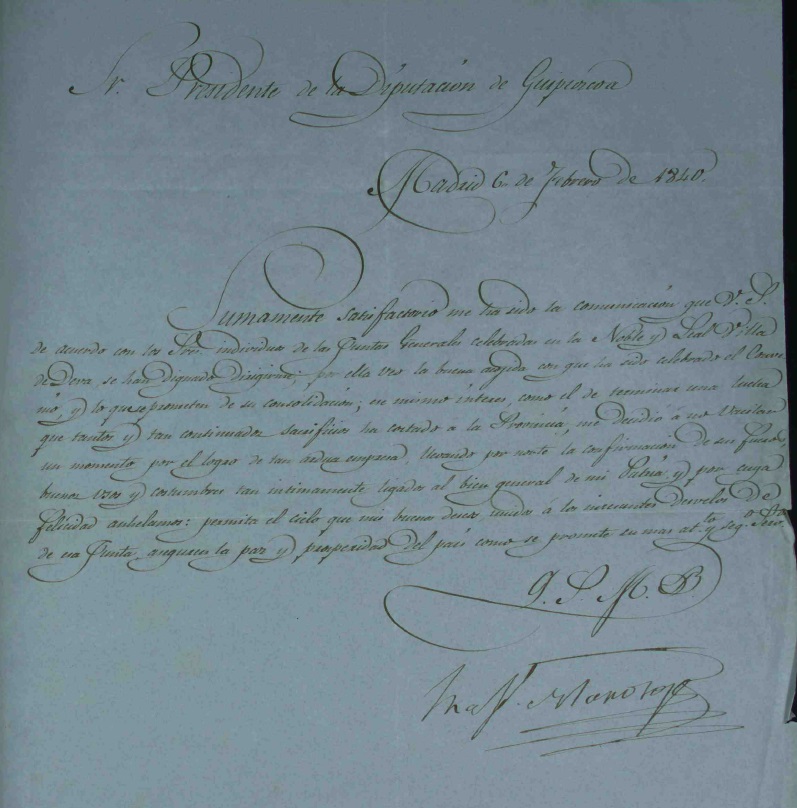 Sr. Presidente de la Diputación de Guipúzcoa
Madrid 6 de Febrero de 1840.
Sumamente satisfactorio me ha sido la comunicación que V. S.
de acuerdo con los Sres. individuos de las Juntas Generales celebradas en la Noble y Leal Villa
de Deva, se han dignado dirigirme; por ella veo la buena acojida con que ha sido celebrado el Conve
nio, y lo que se prometen de su consolidación; en mismo interes, como el de terminar una lucha
que tantos y tan continuados sacrificios ha costado a la Provincia, me decidió á no vacilar
un momento por el logro de tan ardua empresa, llevando por norte la confirmación de sus fueros,
buenos usos y costumbres tan intimamente ligados al bien general de mi Patria, y por cuya
felicidad anhelamos: permita el cielo que mis buenos deseos, unidos á los incesantes desvelos de
esa Junta, aseguren la paz y prosperidad del país como se promete su mas at.to y seg.o Ser.or
Q. S. M. B.
Raf. Maroto